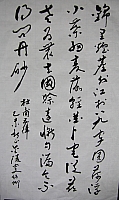 錦里煙塵外江村八九家圓荷浮
小葉細麥落輕花卜宅從茲
老為農去國賒遠慚勾漏令不
得問丹砂
杜甫為農
乙未秋